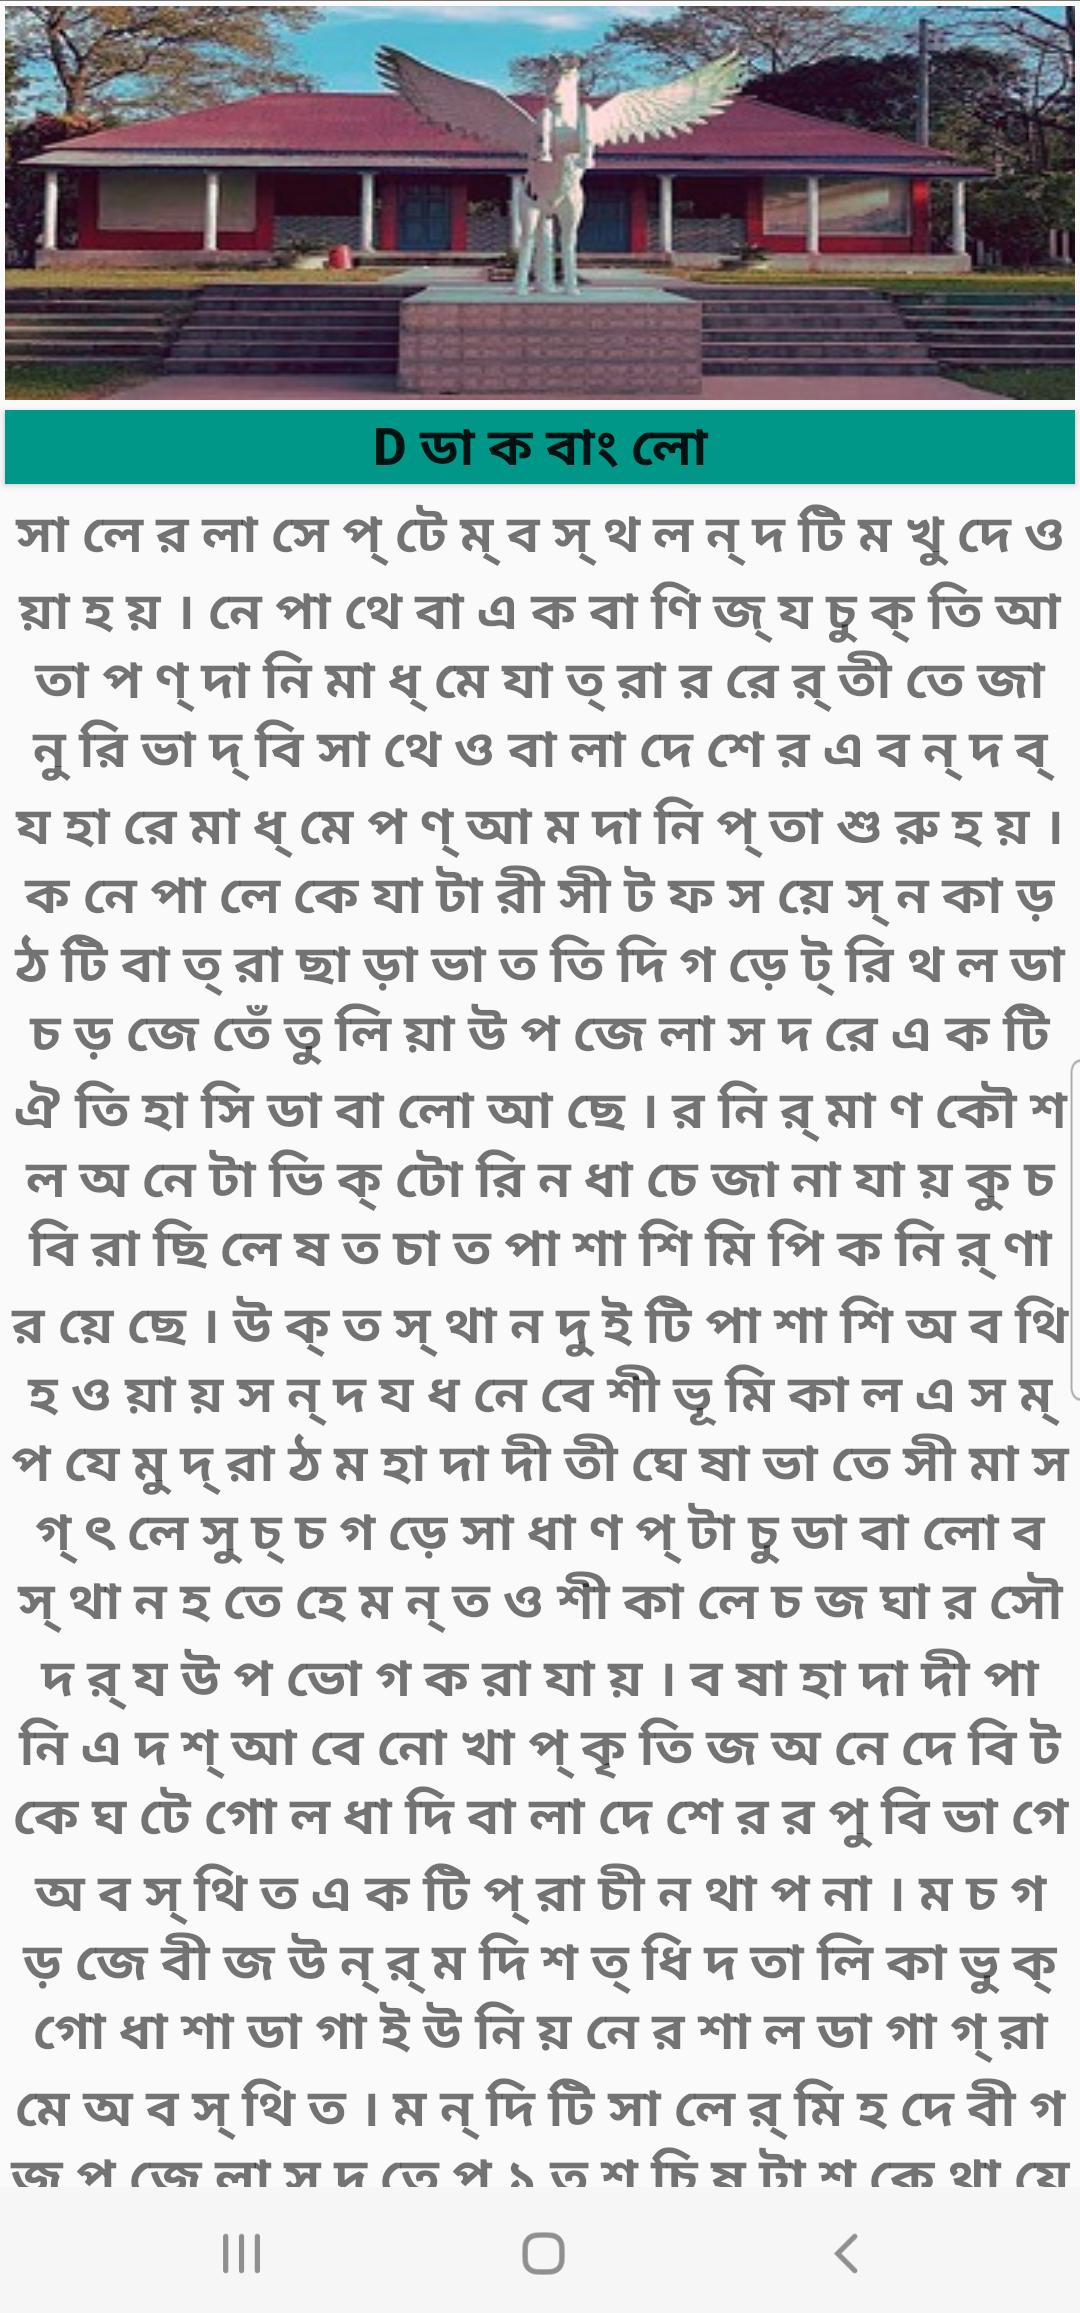 D ডা ক বাং লো
সা লে র লা সে প্ টে ম্ ব স্ থ ল ন্ দ টি ম খু দে ও
য়া হ য় । নে পা থে বা এ ক বা ণি জ্ য চু ক্ তি আ
তা প ণ্ দা নি মা ধ্ মে যা ত্ রা র রে র্ তী তে জা
নু রি ভা দ্ বি সা থে ও বা লা দে শে র এ ব ন্ দ ব্
য হা রে মা ধ্ মে প ণ্ আ ম দা নি প্ তা শু রু হ য় ।
ক নে পা লে কে যা টা রী সী ট ফ স য়ে স্ ন কা ড়
ঠ টি বা ত্ রা ছা ড়া ভা ত তি দি গ ড়ে ট্ রি থ ল ডা
চ ড় জে তেঁ তু লি য়া উ প জে লা স দ রে এ ক টি
ঐ তি হা সি ডা বা লো আ ছে । র নি র্ মা ণ কৌ শ
ল অ নে টা ভি ক্ টো রি ন ধা চে জা না যা য় কু চ
বি রা ছি লে ষ ত চা ত পা শা শি মি পি ক নি র্ ণা
র য়ে ছে । উ ক্ ত স্ থা ন দু ই টি পা শা শি অ ব থি
হ ও য়া য় স ন্ দ য ধ নে বে শী ভূ মি কা ল এ স ম্
প যে মু দ্ রা ঠ ম হা দা দী তী ঘে ষা ভা তে সী মা স
গ্ ৎ লে সু চ্ চ গ ড়ে সা ধা ণ প্ টা চু ডা বা লো ব
স্ থা ন হ তে হে ম ন্ ত ও শী কা লে চ জ ঘা র সৌ
দ র্ য উ প ভো গ ক রা যা য় । ব ষা হা দা দী পা
নি এ দ শ্ আ বে নো খা প্ কৃ তি জ অ নে দে বি ট
কে ঘ টে গো ল ধা দি বা লা দে শে র র পু বি ভা গে
অ ব স্ থি ত এ ক টি প্ রা চী ন থা প না । ম চ গ
ড় জে বী জ উ ন্ র্ ম দি শ ত্ ধি দ তা লি কা ভু ক্
গো ধা শা ডা গা ই উ নি য় নে র শা ল ডা গা গ্ রা
মে অ ব স্ থি ত । ম ন্ দি টি সা লে র্ মি হ দে বী গ
জ প জে লা স দ তে প ১ ত শ চি ষ টা শ কে থা য়ে